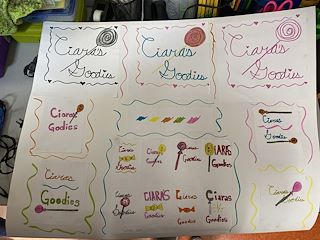 Ciaras
Goodies
Ciaras
Goodies
Ciaras
Goodies
Ciaras
Goodies
Ciaras
Goodies
Ciaras
Goodies
Ciaras
Goodies
Ciaras
Goodies
Ciaras
Goodies
CIARAS
Goodies
Ciaras
Goodies
CIARAS
Goodies
Ciaras
Goodies
Ciaras
Goodies
Ciaras
Goodies